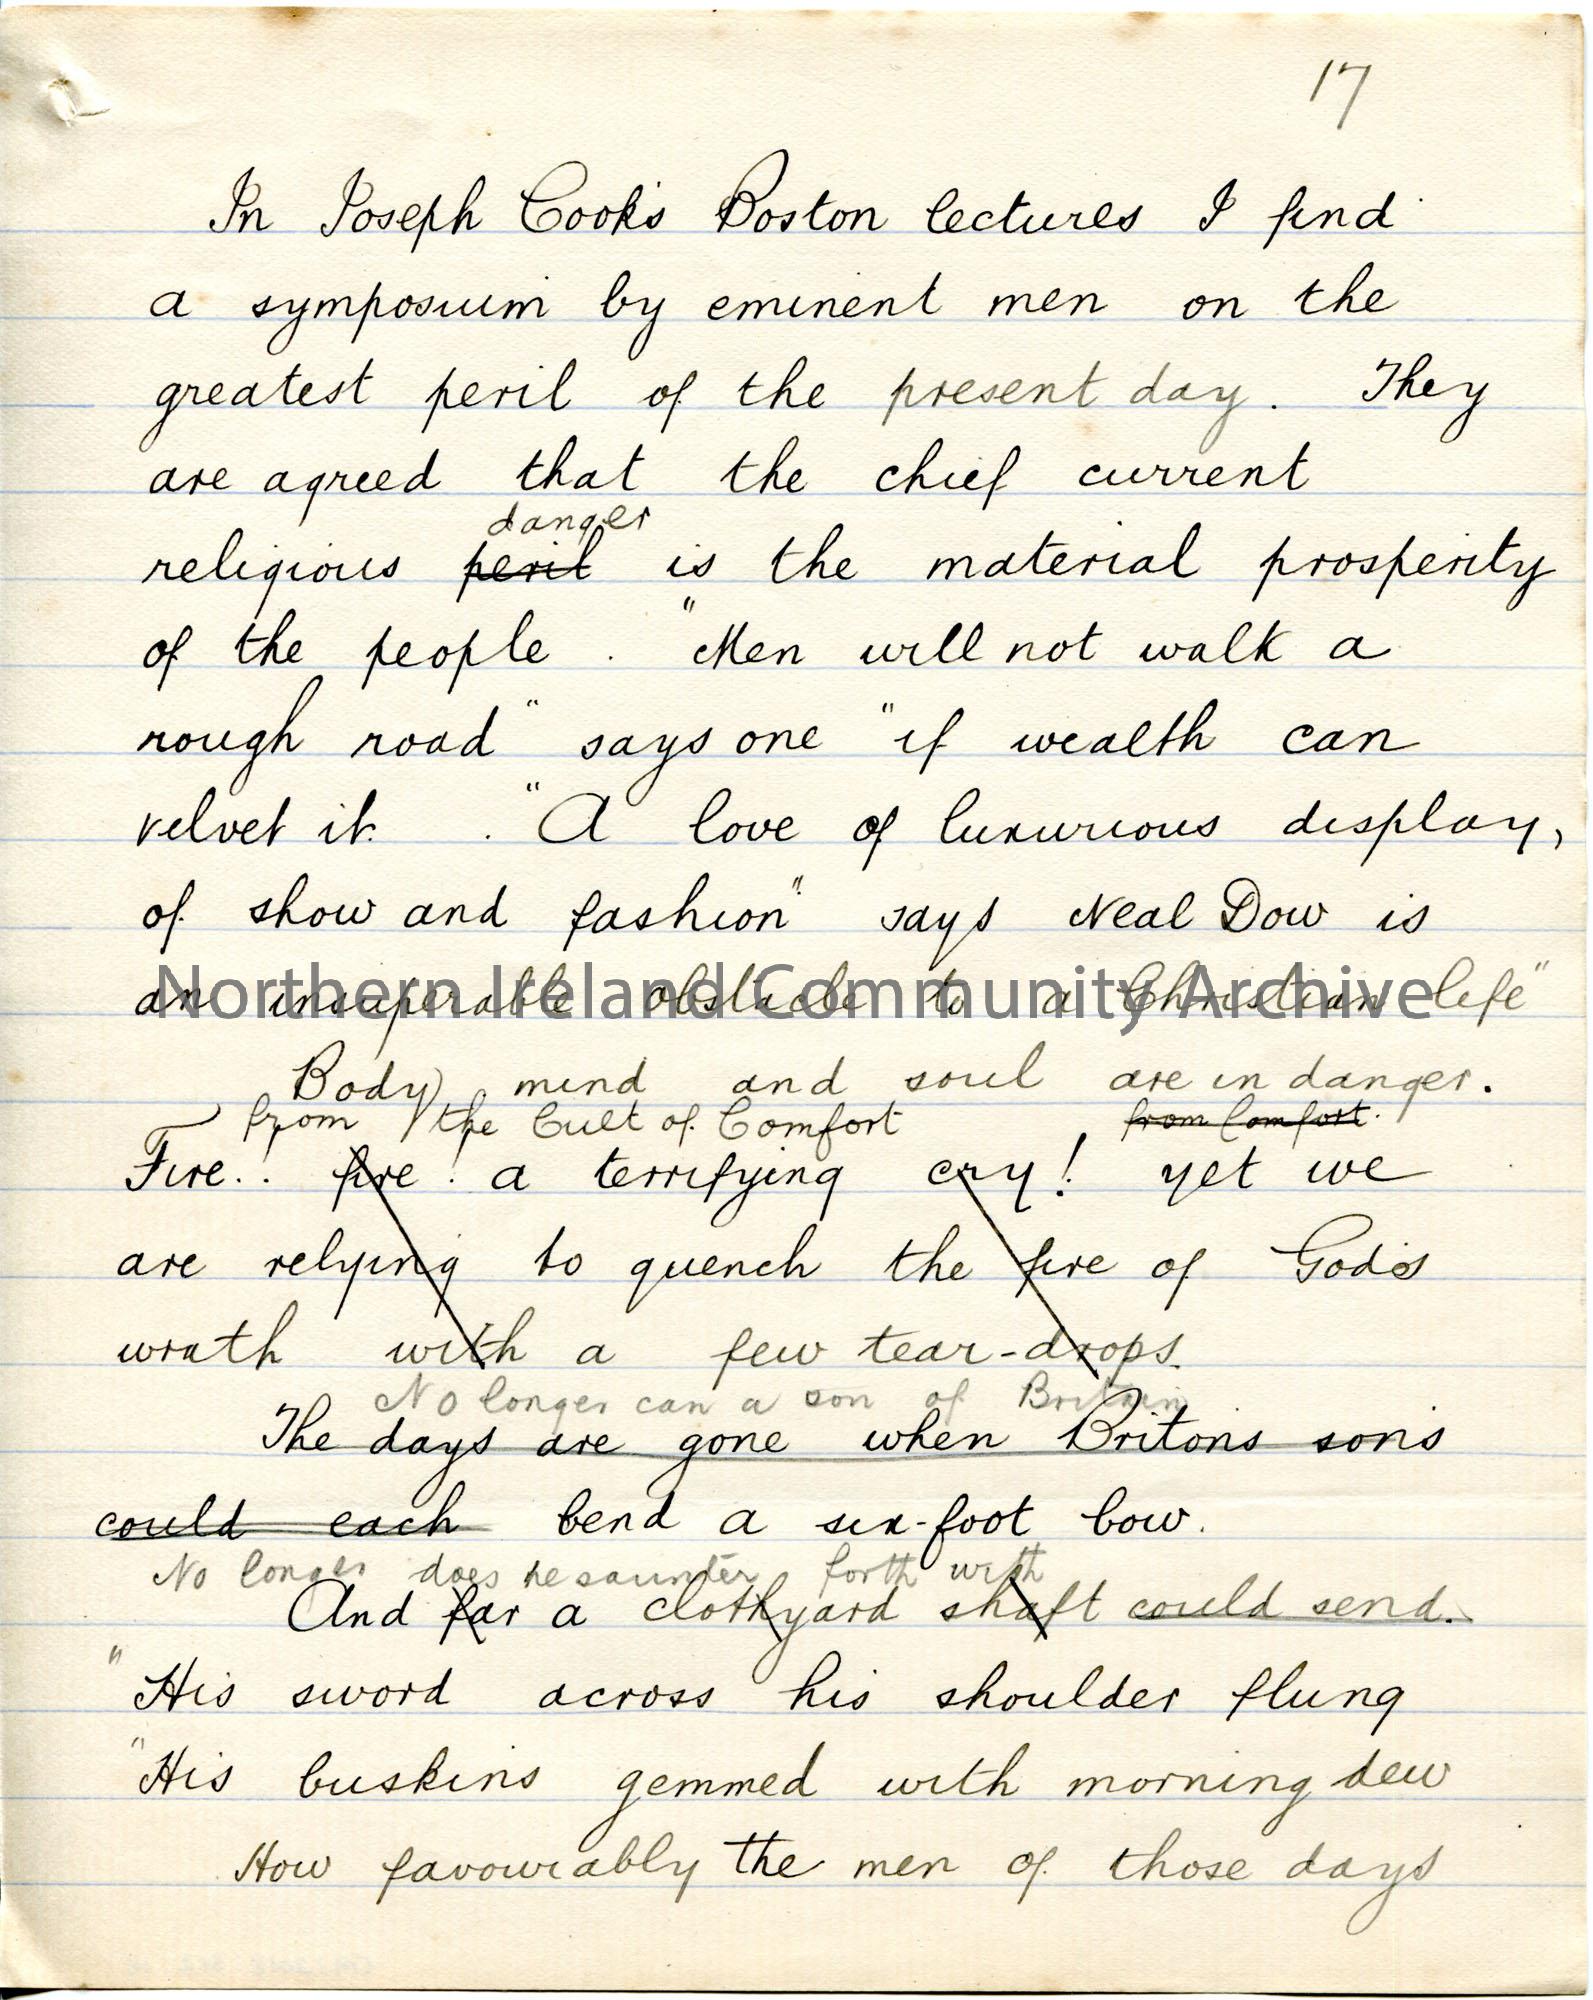 17
In Joseph Cook's Boston lectures I find
a symposium by eminent men on the
greatest peril of the present day. They
are agreed that the chief current
danger
religious peril is the material prosperity
of the people. "Men will not walk a
rough road" says one "if wealth can
velvet it. "A love of luxurious display,
of show and fashion" says Neal Dow is
an insuperable obstacle to a Christian life"
Northern Ireland Community Archive
Body mind and soul are in danger.
from the Cult of Comfort from Comfort.
Fire! fire! a terrifying cry! yet we
are relying to quench the fire of God's
wrath with a few tear-drops.
No longer can a son of Britain
The days are gone when Britons sons
could each bend a six-foot bow.
No longer does he saunter forth with
And far a clothyard shaft could send.
"His sword across his shoulder flung
"His buskins gemmed with morning dew
How favourably the men of those days